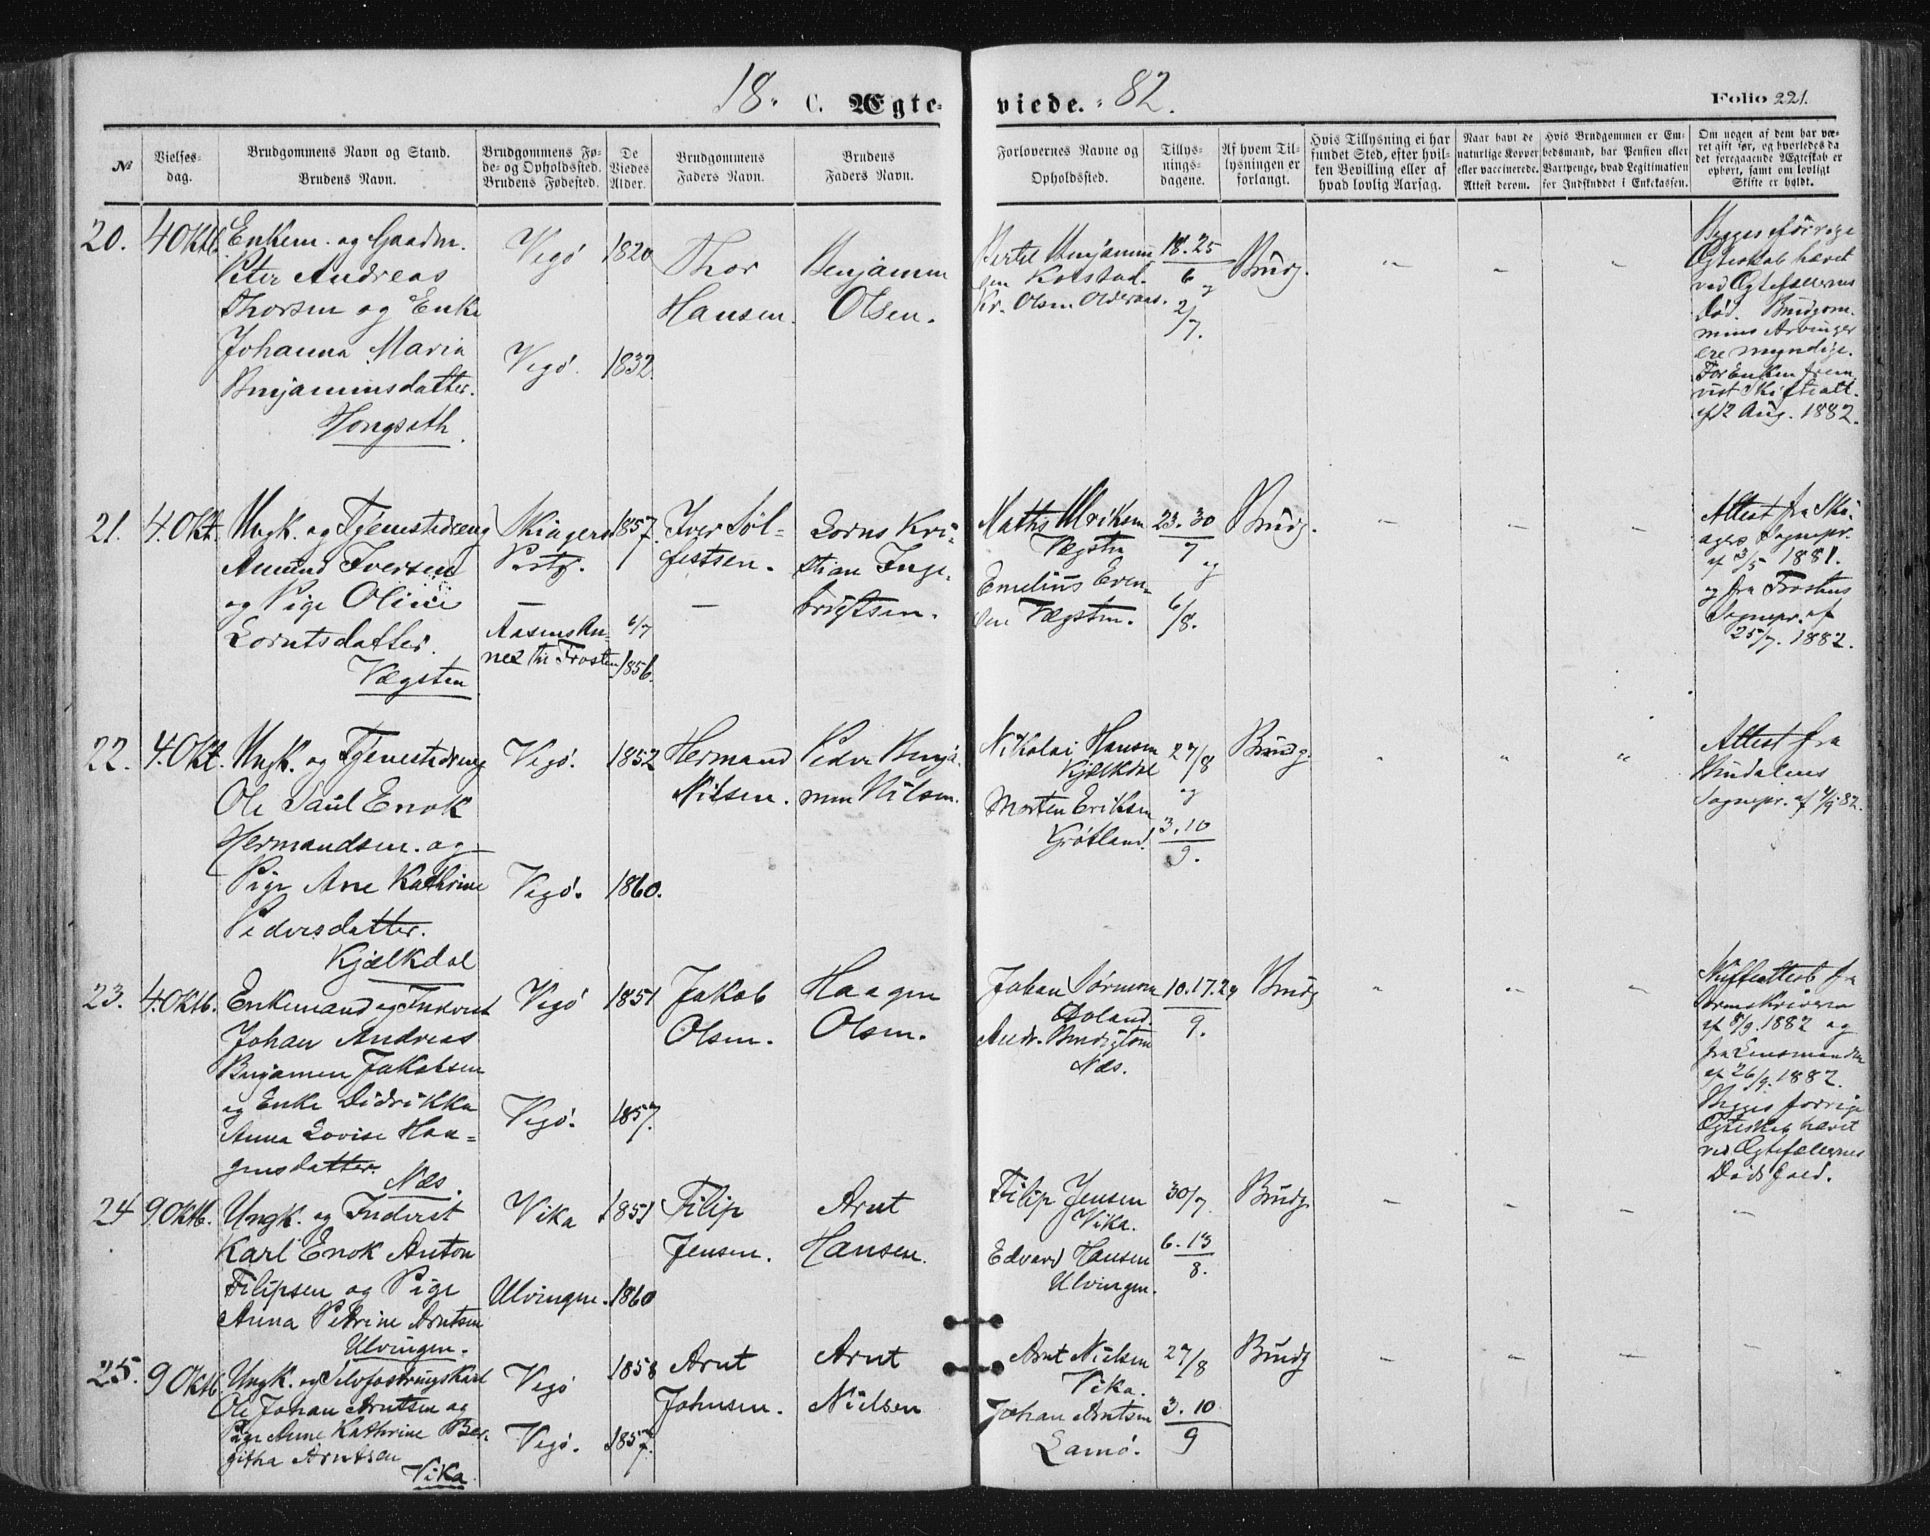 18. C. Ægteviede. 82.
Folio 221.
№
Vielsesdag.
Brudgommens Navn og Stand.
Brudens Navn.
Brudgommens Føde- og Opholdsted.
Brudens Fødested.
De Viedes Alder.
Brudgommens Faders Navn.
Brudens Faders Navn.
Forlovernes Navne og Opholdsted.
Tillysningsdagene.
Af hvem Tillysningen er forlangt.
Hvis Tillysning ei har fundet Sted, efter hvilken Bevilling eller af hvad lovlig Aarsag.
Naar havt de naturlige Kopper eller vaccinerede. Attest derom.
Hvis Brudgommen er Embedsmand, har Pension eller Vartpenge, hvad Legitimation for Indskuddet i Enkekassen.
Om nogen af dem har været gift før, og hvorledes da det foregaaende Ægteskab er ophørt, samt om lovligt Skifte er holdt.
20. 4 Oktb.
Enkem. og Gaardm.
Peter Andreas
Thorsen og Enke
Johanna Maria
Benjaminsdatter.
Hongseth.
Vegö 1820
Vegö. 1832.
Thor
Hansen.
Benjamin
Olsen.
Bertil Benjamin
sen Kolstad.
Kr. Olsen Olderaas.
18. 25
6 og
2/7.
Brudg.
Begges forrige
Ægteskab hævet
ved Ægtefællernes
Død. Brudgom
mens Arvinger
ere myndige.
For Enken frem
vist Skifteatt.
af 12 Aug. 1882.
21. 4. Okt.
Ungk. og Tjenestedreng
Amund Iversen
og Pige Oline
Lorntsdatter.
Vægsten
Skingers
Prstg.
1857.
Aasens An-
nex til Frosten
6/7
1856.
Iver Søl-
festsen.
Lorns Kri-
stian Inge-
brigtsen.
Maths Ulriksen
Vægsten
Emelius Even-
sen Vægsten.
23. 30
7 og
6/8.
Brudg.
Attest fra Skå-
agers Sognepr.
af 3/5 1881.
og fra Frostens
Sognepr. af
25/7. 1882.
22. 4. Okt.
Ungk. og Tjenestedreng
Ole Paul Enok
Hermandsen. og
Pige Ane Kathrine
Pedersdatter.
Kjælkdal
Vegö. 1852
Vegö. 1860.
Hermand
Nilsen.
Peder Benja-
min Nilsen.
Nikolai Hansen
Kjælkdal
Morten Eriksen
Grøtland.
27/8
og
3. 10
9.
Brudg.
Attest fra
Bindalens
Sognepr. af 4/9 82.
23. 4. Oktb.
Enkemand og Inderst
Johan Andreas
Benjamin Jakobsen
og Enke Didrikka
Anna Lovise Haa-
gensdatter.
Næs.
Vegö 1851
Vegö. 1857.
Jakob
Olsen.
Haagen
Olsen.
Johan Sørensen
Andr. Bendigtsen
Næs.
10. 17. 24
9.
Brudg
Skifteattest fra
Sorenskriveren
af 8/9. 1882 og
fra Lensmanden
af 26/9. 1882.
Begges forrige
Ægteskab hævet
ved Ægtefællernes
Dødsfald.
24 9 Oktb.
Ungk. og Inderst
Karl Enok Anton
Filipsen og Pige
Anna Petrine Arntsen
Ulvingen.
Vika 1851
Ulvingen. 1860
Filip
Jensen.
Arnt
Hansen.
Filip Jensen
Vika.
Edvard Hansen
Ulvingen.
30/7.
6. 13
8.
Brudg.
25. 9 Oktb.
Ungk. og Selvfostringskarl
Ole Johan Arntsen og
Pige Anne Kathrine Ber-
githa Arntsen
Vika
Vegö 1858
Vegö. 1857.
Arnt
Johnsen.
Arnt
Nielsen
Arnt Nielsen
Vika.
Johan Arntsen
Lamö.
27/8
3. 10
9
Brudg